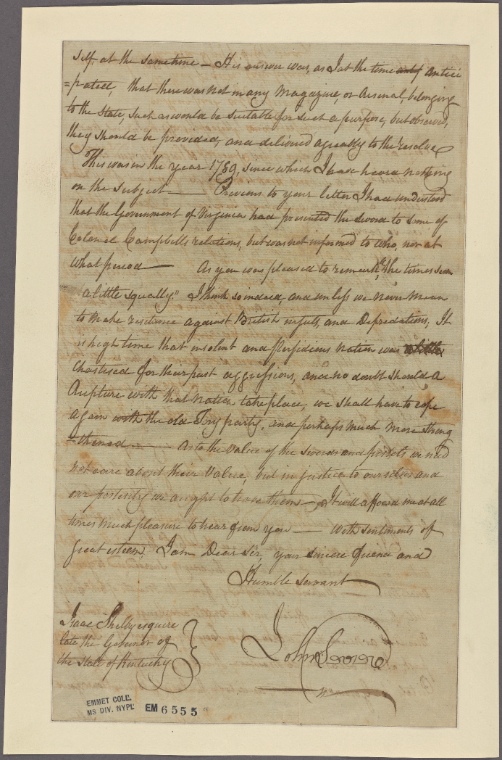 self at the sametime — His answer was, as I at the time antici
=pated, that there was not in any Magazine or Arsenal, belonging
to the State, such as would be suitable for such a purpose, but observed,
they should be provided, and delivered agreeably to the resolve
This was in the Year 1789, since which I have heard nothing
on the subject — Previous to your letter I had understood
that the Government of Virginia had presented the sword to some of
Colonel Campbells relations, but was not informed to who, nor at
what period — As you was pleased to remark, "the times seem
a little squally" I think so indeed, and unless we never mean
to make resistance against British insults, and Depredations, It
is high time that insolent and perfidious nation was
Chastised for their past aggressions, and no doubt should a
Rupture with that nation take place, we shall have to cope
again with the old Tory party, and perhaps much more streng
=thened — As to the value of the swords and pistols we need
not care about their value, but in justice to ourselves and
our posterity we ought to have them — It will afford me at all
times much pleasure to hear from you — With sentiments of
great esteem I am Dear Sir, your sincere friend and
Humble servant
Isaac Shelby esquire
late the Governor of
the State of Kentucky
John Sevier
EMMET COLL.
MS DIV. NYPL
EM 6555